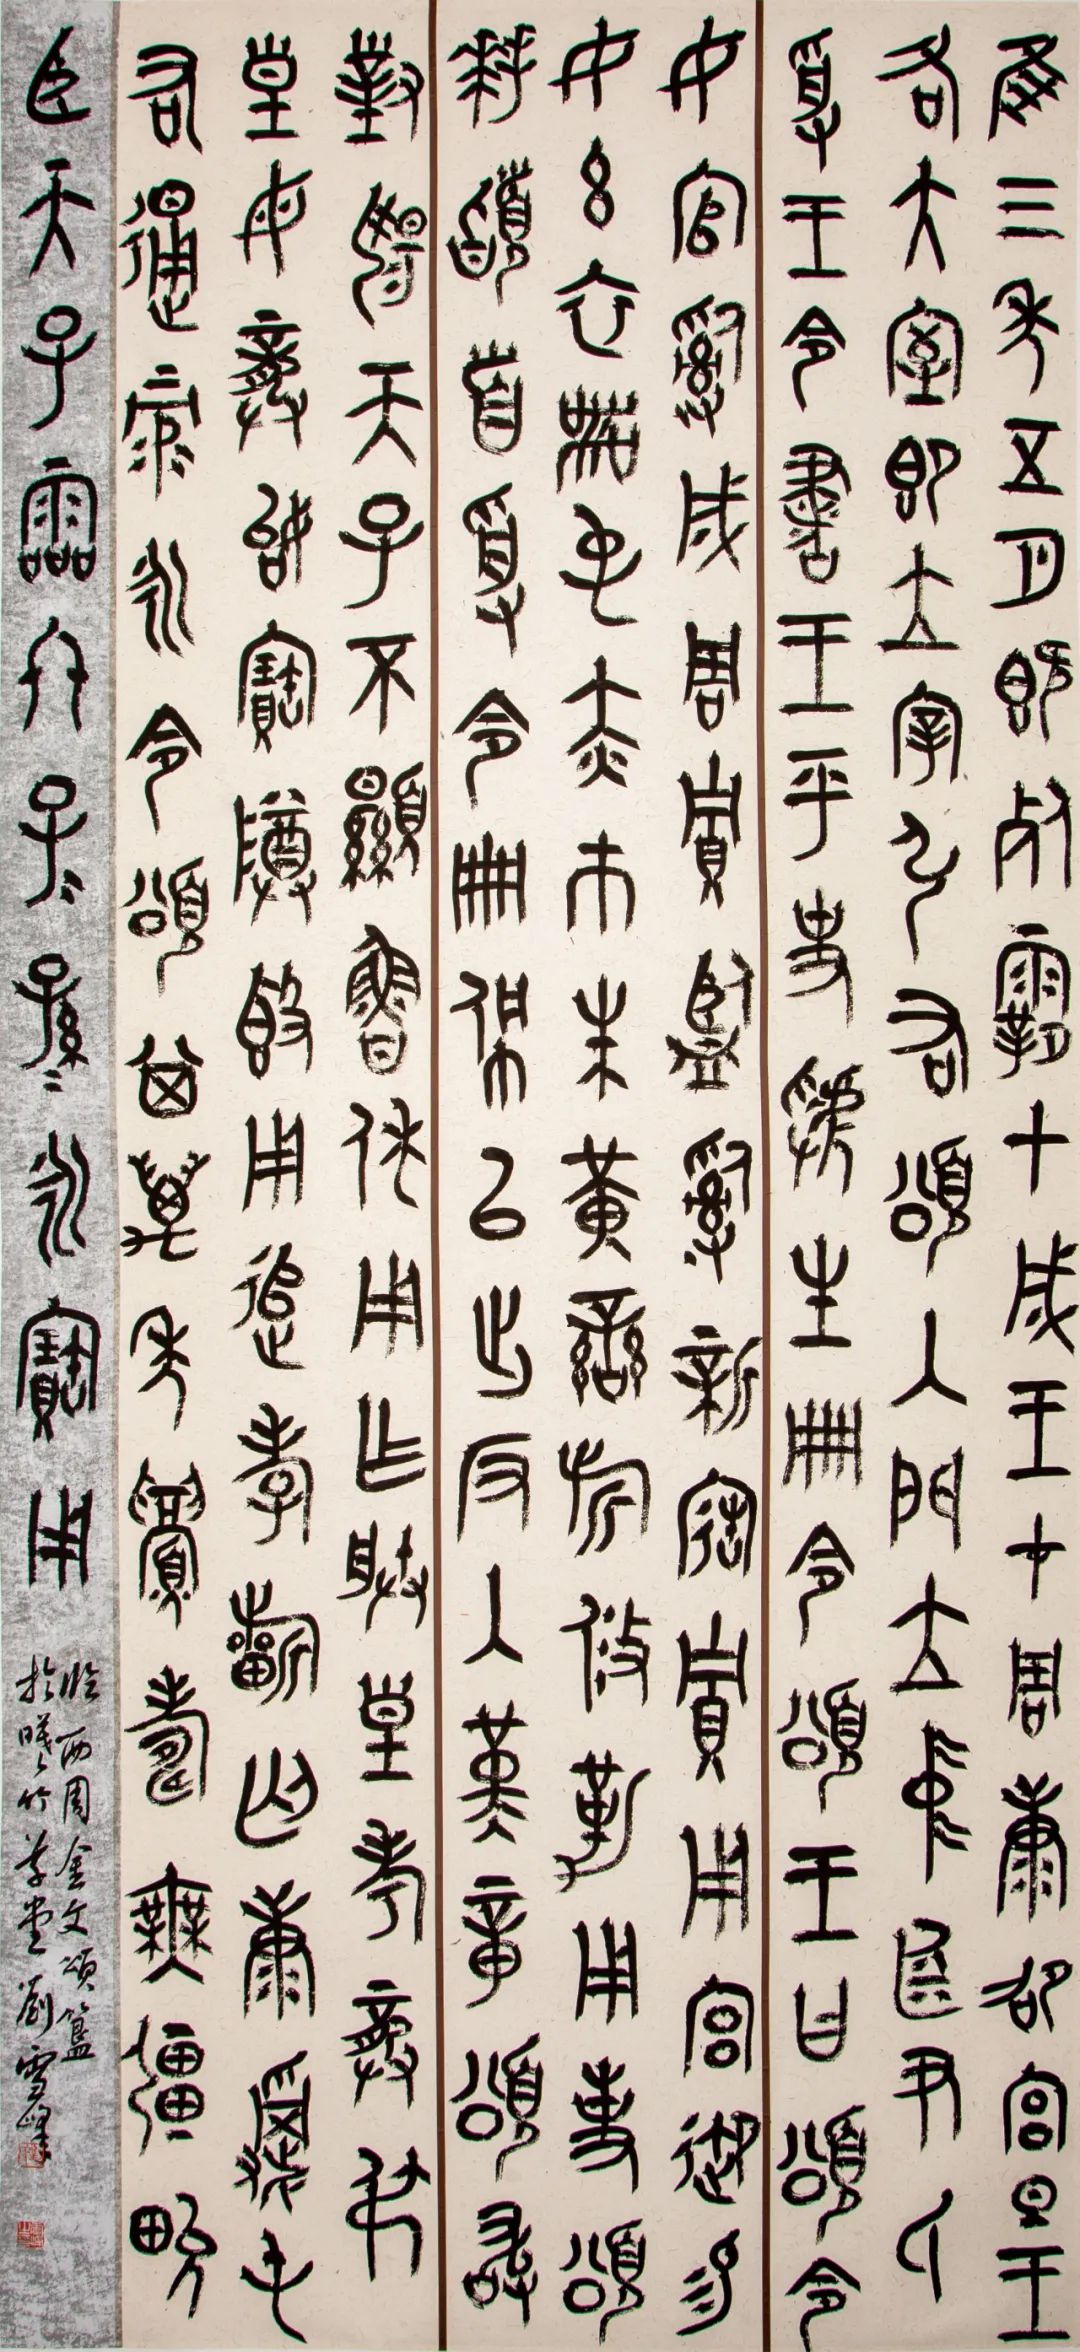 隹三年五月既死霸甲戌王才周康卲宮旦王
各大室即立宰弘右頌入門立中廷尹氏
受王令書王乎史虢生冊令頌王曰頌令
女官𤔲成周貯監𤔲新寤貯用宮御易
女玄衣黹屯赤巿朱黃䜌旂攸勒用事頌
拜𩒨首受令冊佩以出反入堇章頌敢
對揚天子不顯魯休用乍朕皇考龏弔
皇母龏姒寶尊簋用追孝祈匄康𩛥屯
右通彔永令頌其萬年眉壽無疆畯
臣天子霝冬子=孫=永寶用
臨西周金文頌簋
於曦竹草堂劉雪峰